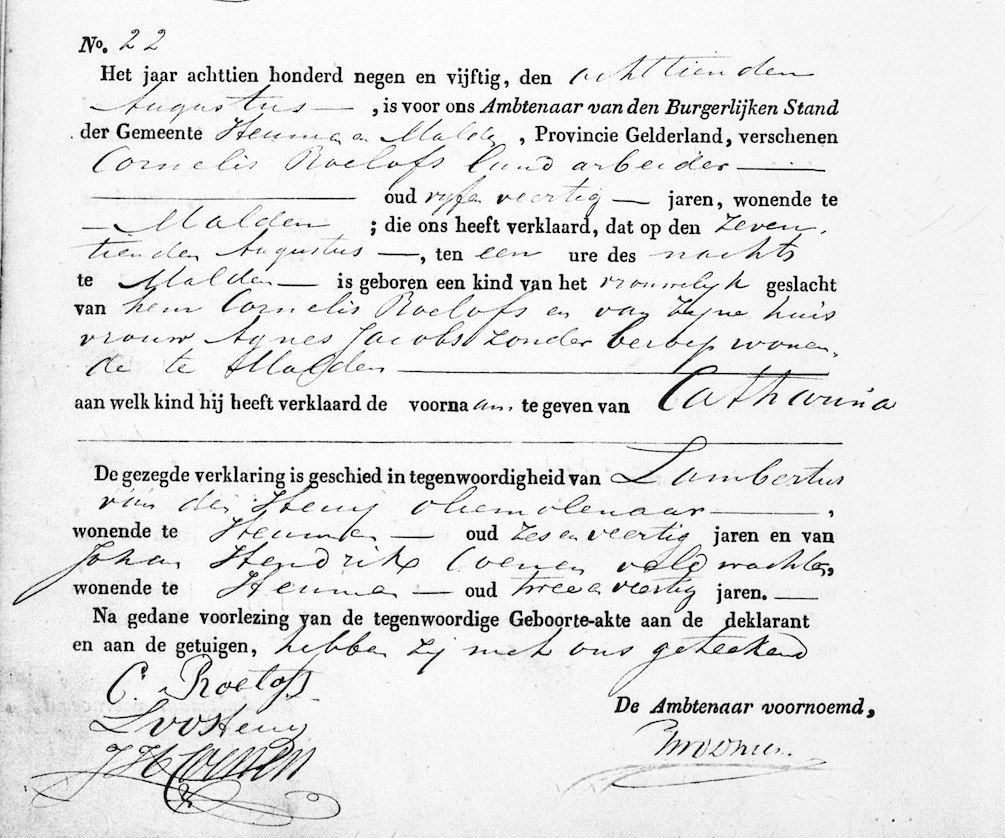 No. 22
Het jaar achttien honderd negen en vijftig, den achttienden
Augustus —, is voor ons Ambtenaar van den Burgerlijken Stand
der Gemeente Heumen Malden, Provincie Gelderland, verschenen
Cornelis Roelofs landarbeider —
— oud vyfenveertig — jaren, wonende te
— Malden ; die ons heeft verklaard, dat op den zeven-
tienden Augustus —, ten een ure des nachts
te Malden — is geboren een kind van het vrouwelyk geslacht
van hem Cornelis Roelofs en van zyne huis
vrouw Agnes Jacobs zonder beroep wonen-
de te Malden —
aan welk kind hij heeft verklaard de voornaam te geven van Catharina
De gezegde verklaring is geschied in tegenwoordigheid van Lambertus
van der oliemolenaar —,
wonende te Heumen — oud zesenveertig jaren en van
Johan Hendrik Coenen veldwachter,
wonende te Heumen — oud tweeenveertig jaren. —
Na gedane voorlezing van de tegenwoordige Geboorte-akte aan de deklarant
en aan de getuigen, hebben zy met ons geteekend
C. Roelofs
JHCoenen
De Ambtenaar voornoemd,